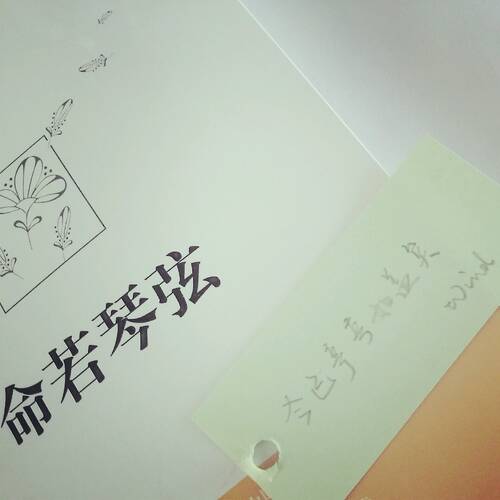 命若琴弦
今已亭亭如盖矣
Wind